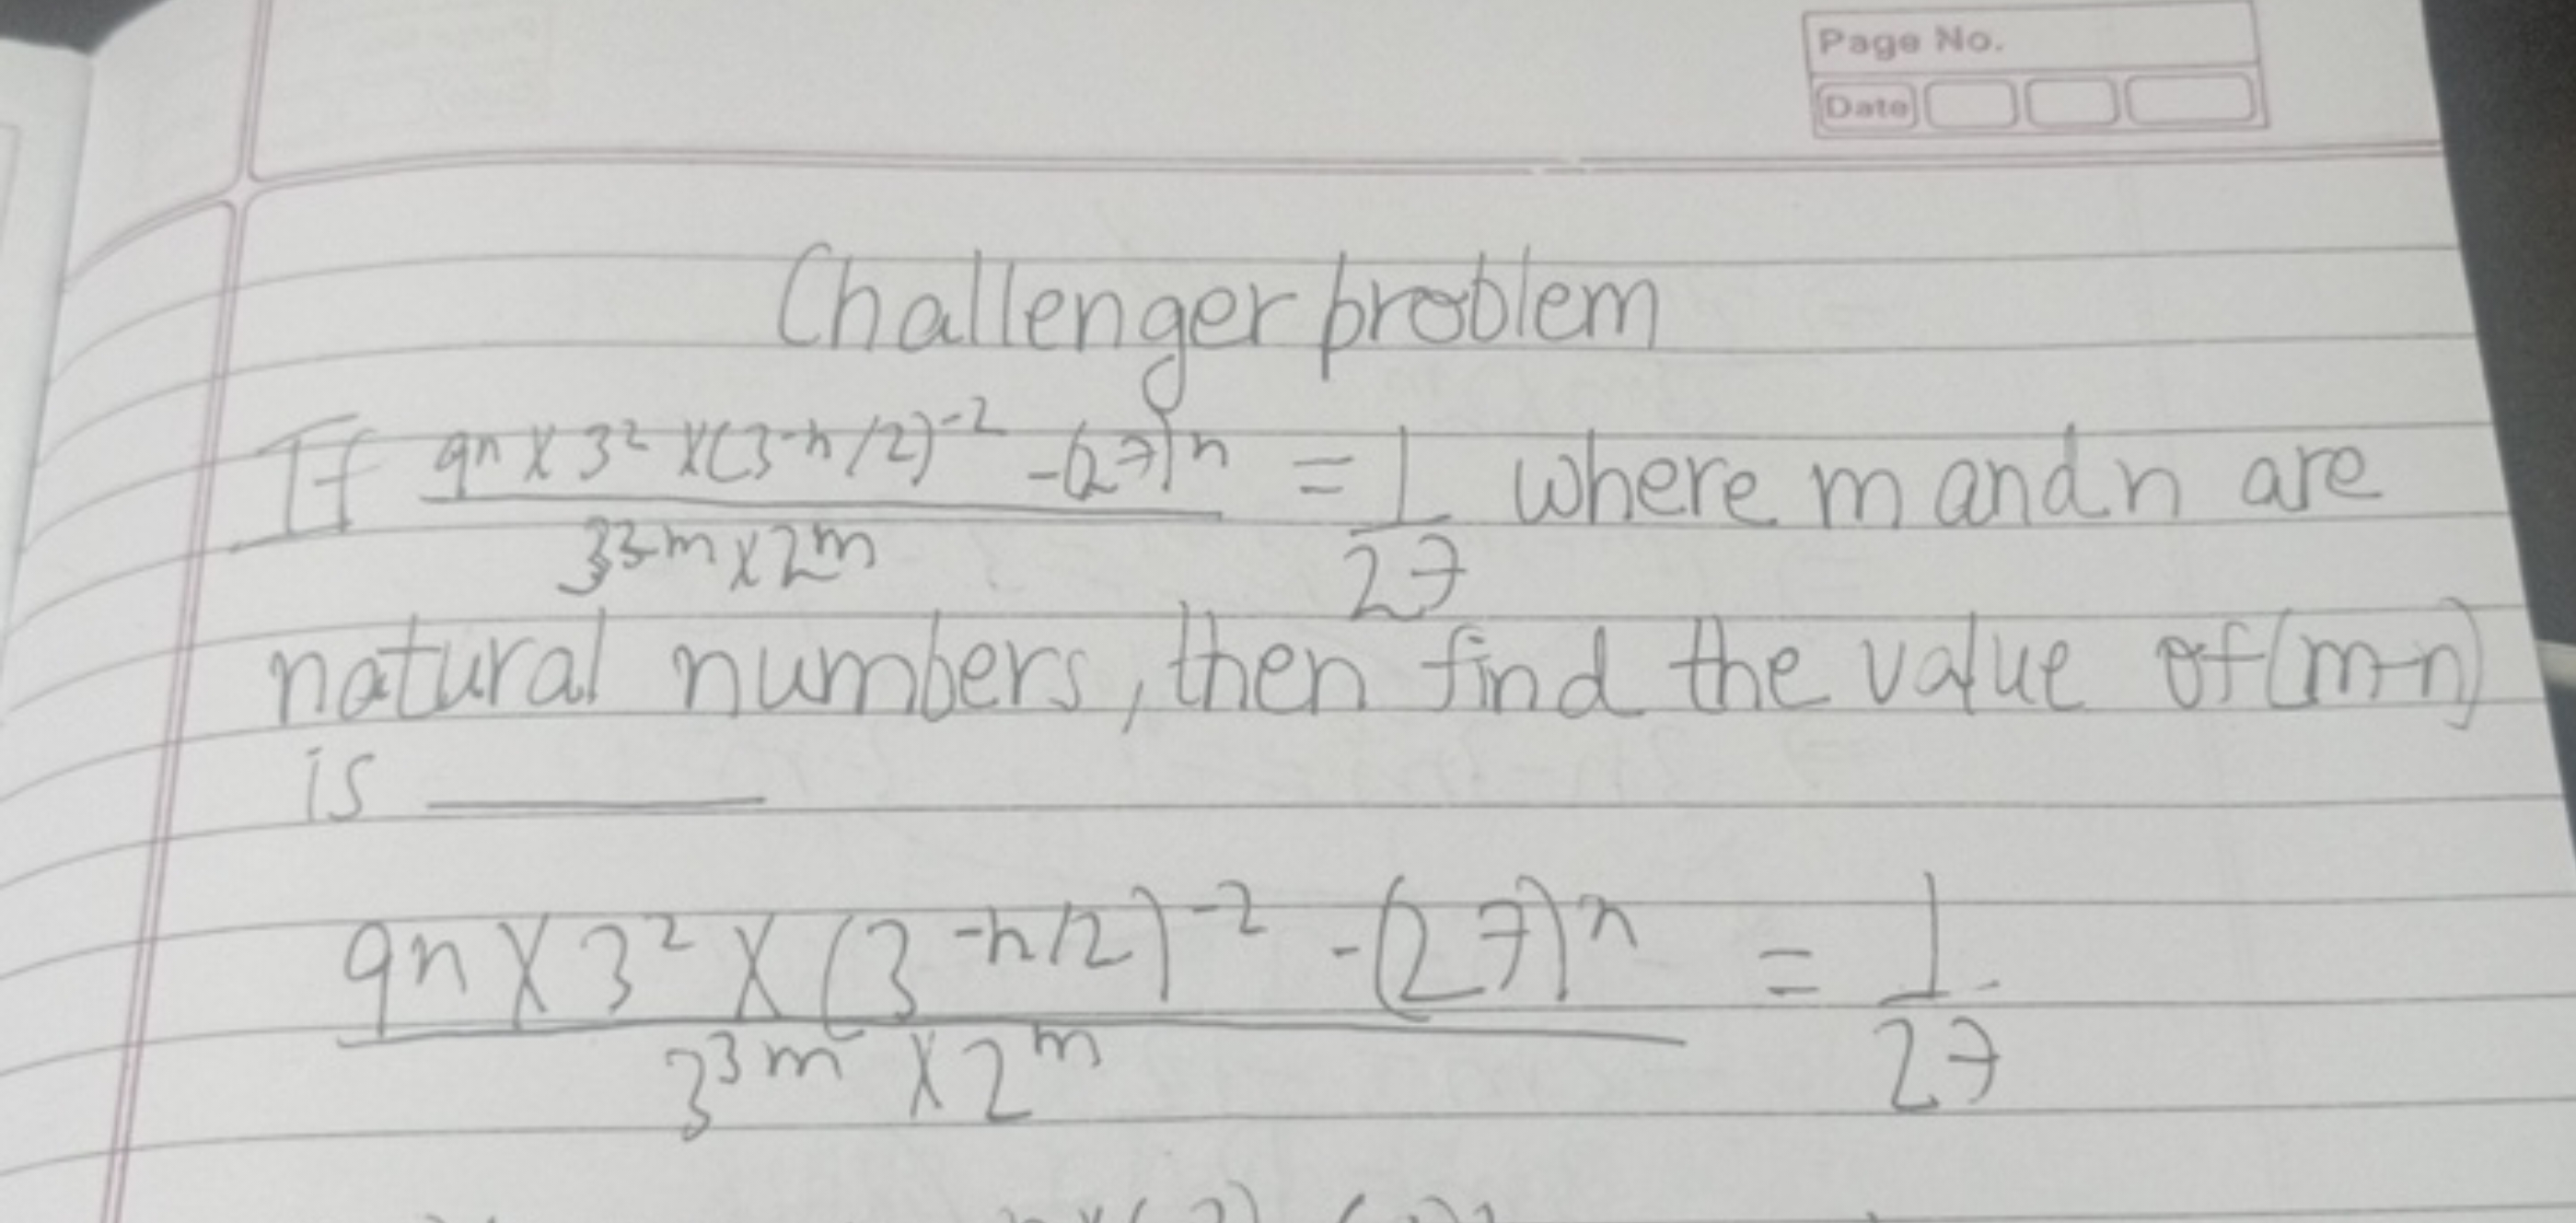 Page No.
Date
Challenger problem
If 9n × 3² × (3-n/2)⁻² - (27)ⁿ / 3³m × 2m = 1/27 where m and n are
natural numbers, then find the value of (m-n)
is ______
9n × 3² × (3⁻ⁿ/²)⁻² - (27)ⁿ / 3³ᵐ × 2ᵐ = 1/27